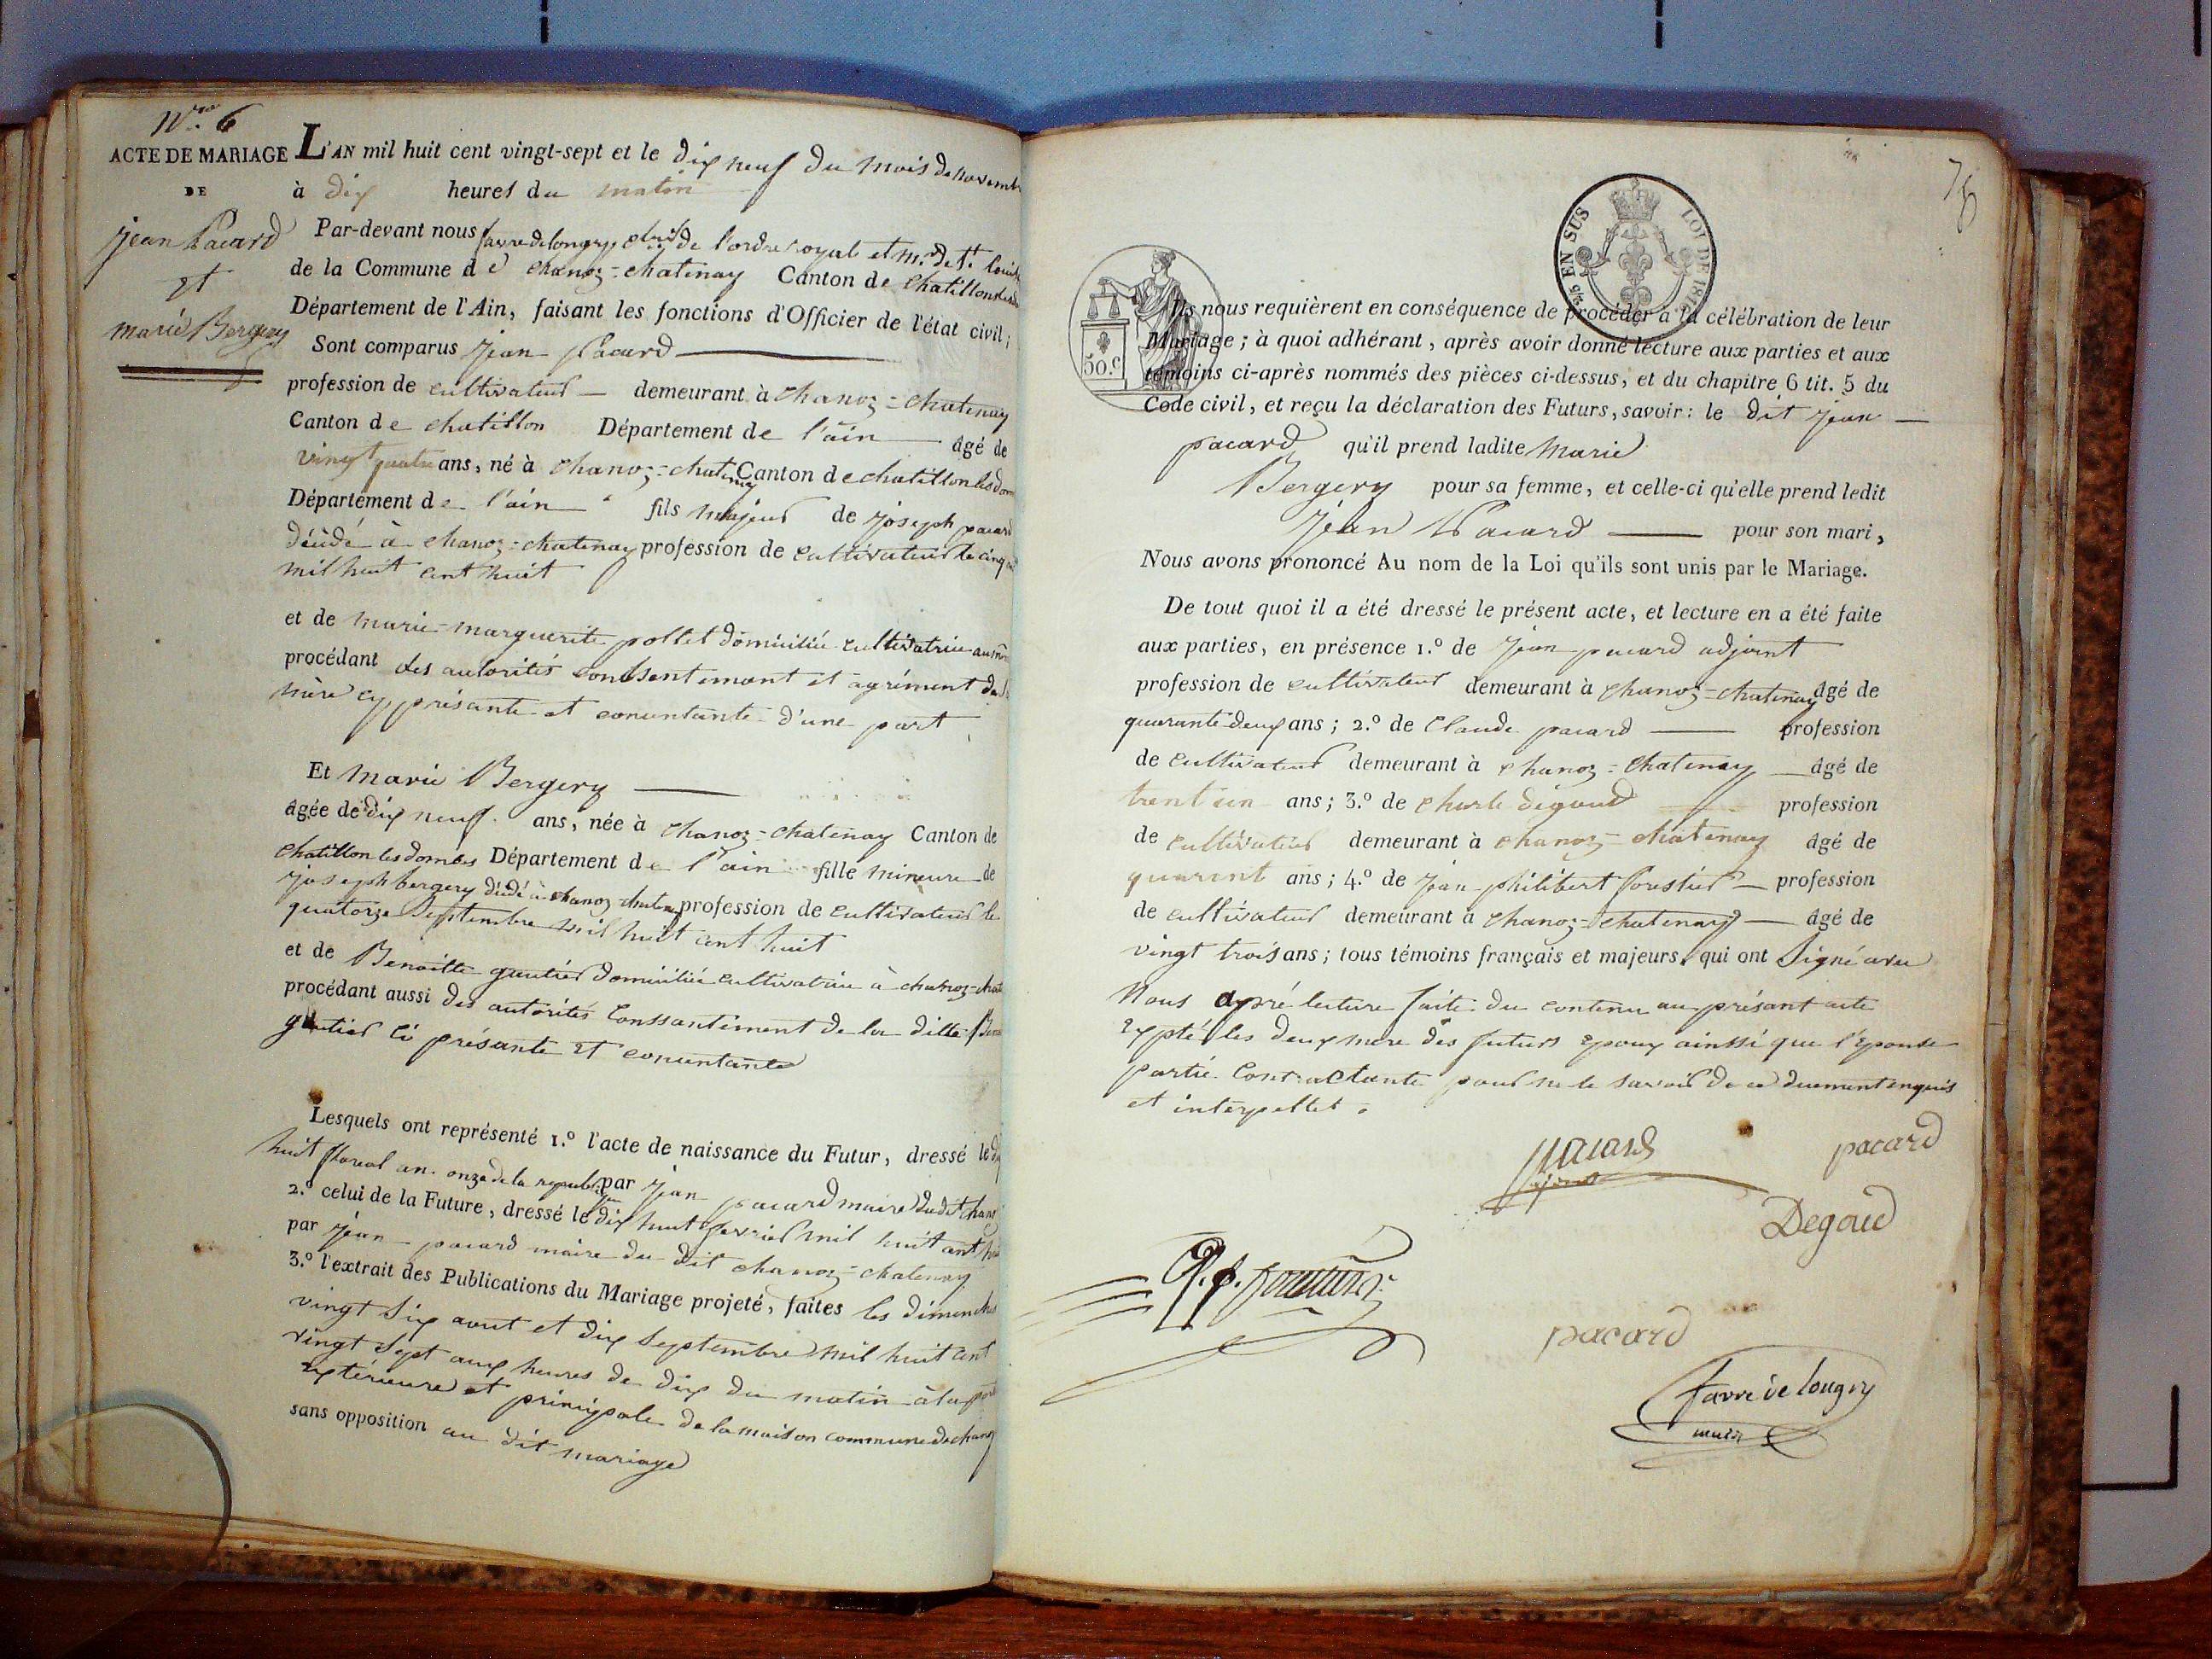 N.ro 6
ACTE DE MARIAGE
DE
jean Pacard
et
marie Bergery
L'AN mil huit cent vingt-sept et le dix neuf du mois de novembre
à dix heures du matin
Par-devant nous favre de longry de l'ordre royal et m. de St. louis
de la Commune de chanoz=chatenay Canton de chatillon
Département de l'Ain, faisant les fonctions d'Officier de l'état civil;
Sont comparus jean Pacard
profession de cultivateur demeurant à chanoz=chatenay
Canton de chatillon Département de l'ain âgé de
vingt quatre ans, né à chanoz=chatenay Canton de chatillon les dom
Département de l'ain fils majeur de joseph pacard
décédé à chanoz=chatenay profession de cultivateur le cinq
mil huit cent huit
et de marie-marguerite pollet domiciliée cultivatrice au
procédant des autorités conssentement et agrément de
mère cy présante et conuntante d'une part
Et marie Bergery
âgée de dix neuf ans, née à chanoz=chatenay Canton de
chatillon les dombes Département de l'ain fille mineure de
joseph bergery décédé à chanoz-chatenay profession de cultivateur le
quatorze septembre mil huit cent huit
et de Benoitte gautier domiciliée cultivatrice à chanoz=chate
procédant aussi des autorités Conssantiment de la ditte Beno
gautier ci présante et conuntante
Lesquels ont représenté 1.º l'acte de naissance du Futur, dressé le dix
huit floreal an onze de la republique par jean pacard maire du dit chano
2.º celui de la Future, dressé le dix huit fevrier mil huit cent hui
par jean pacard maire du dit chanoz=chatenay
3.º l'extrait des Publications du Mariage projeté, faites les dimenches
vingt six aout et dix septembre mil huit cent
vingt sept aux heures de dix du matin à la porte
extérieure et principale de la maison commune de chanoz
sans opposition au dit mariage
78
25 EN SUS
LOI DE 1816
50.c
Ils nous requièrent en conséquence de procéder à la célébration de leur
Mariage; à quoi adhérant, après avoir donné lecture aux parties et aux
témoins ci-après nommés des pièces ci-dessus, et du chapitre 6 tit. 5 du
Code civil, et reçu la déclaration des Futurs, savoir: le dit jean
pacard qu'il prend ladite marie
Bergery pour sa femme, et celle-ci qu'elle prend ledit
jean Pacard pour son mari,
Nous avons prononcé Au nom de la Loi qu'ils sont unis par le Mariage.
De tout quoi il a été dressé le présent acte, et lecture en a été faite
aux parties, en présence 1.º de jean pacard adjoint
profession de cultivateur demeurant à chanoz=chatenay âgé de
quarante deux ans; 2.º de Claude pacard profession
de cultivateur demeurant à chanoz=chatenay âgé de
trent un ans; 3.º de charle degoud profession
de cultivateur demeurant à chanoz=chatenay âgé de
quarant ans; 4.º de jean philibert forestier profession
de cultivateur demeurant à chanoz=chatenay âgé de
vingt trois ans; tous témoins français et majeurs, qui ont signé avec
Nous apré lecture faite du contenu au présant acte
expté les deux mere des futurs epoux ainssi que l'épouse
partie Contractante pour ne le savoir de ce duement enquis
et interpellet.
pacard
adjoint
pacard
Degoud
pacard
favre de longry
maire